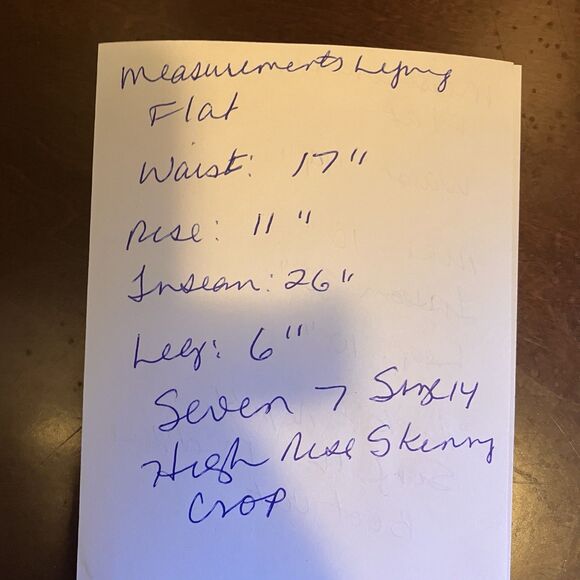 Measurements Lying
Flat
Waist: 17"
Rise: 11"
Inseam: 26"
Leg: 6"
Seven 7 Size 14
High Rise Skinny
Crop